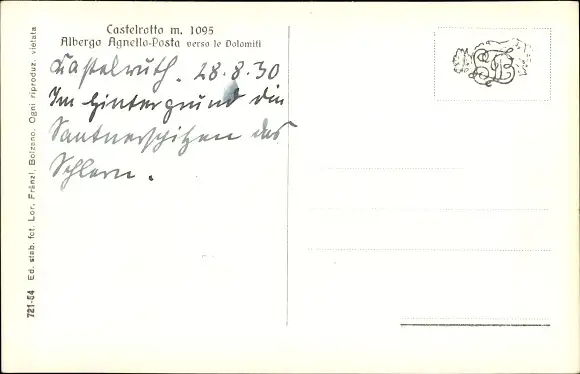 Castelrotto m. 1095
Albergo Agnello-Posta verso le Dolomiti
Kastelruth. 28.8.30
Im Hintergrund die
Santnerspitzen des
Schlern.
721-54 Ed. stab. fot. Lor. Fränzl, Bolzano. Ogni riproduz. vietata